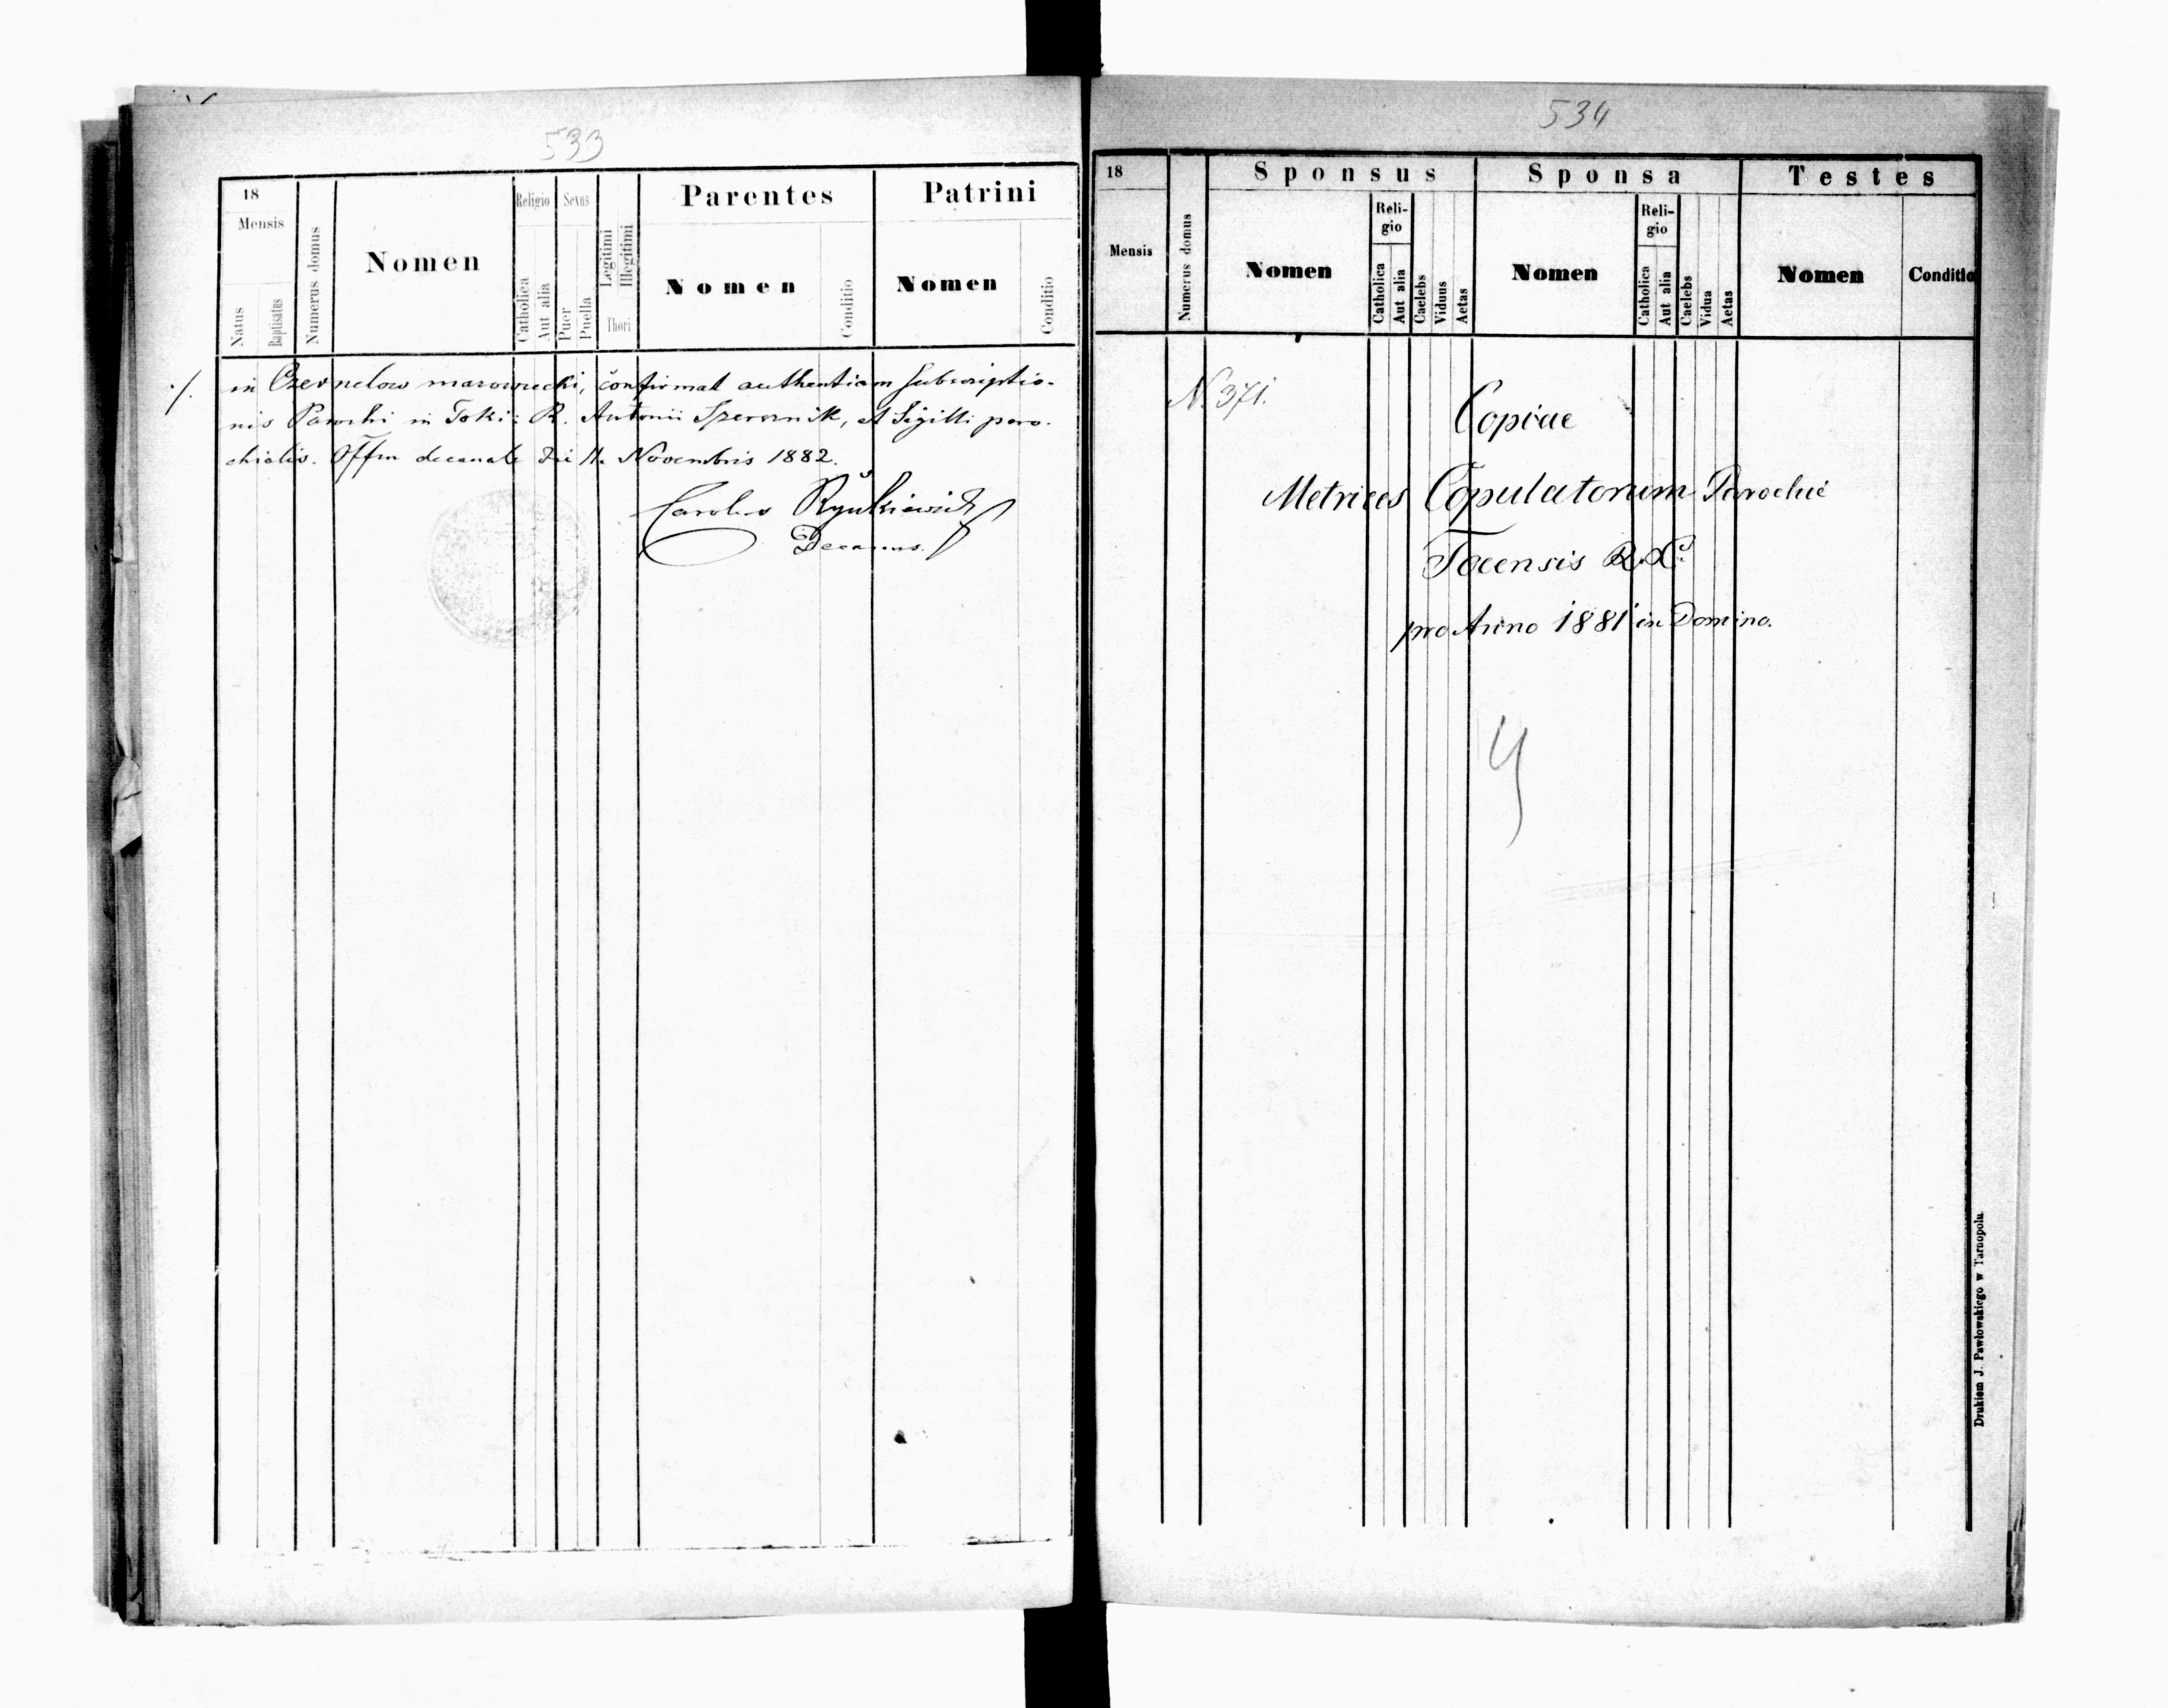 533
18
Mensis
Natus
Baptisatus
Numerus domus
Nomen
Religio
Catholica
Aut alia
Sexus
Puer
Puella
Legitimi
Illegitimi
Thori
Parentes
Nomen
Conditio
Patrini
Nomen
Conditio
./. in Czernelow mazowiecki, confirmat authentiam subscriptio-
nis Parochi in Toki: R. Antonii , et Sigilli paro-
chialis. Offm decanale die 11. Novembris 1882.
Carolus
Decanus.
534
18
Mensis
Numerus domus
Sponsus
Nomen
Reli-
gio
Catholica
Aut alia
Caelebs
Viduus
Aetas
Sponsa
Nomen
Reli-
gio
Catholica
Aut alia
Caelebs
Vidua
Aetas
Testes
Nomen
Conditio
N. 371.
Copiae
Metrices Copulatorum Parochie
Tocensis R. L.
pro Anno 1881 in Domino.
Drukiem J. Pawłowskiego w Tarnopolu